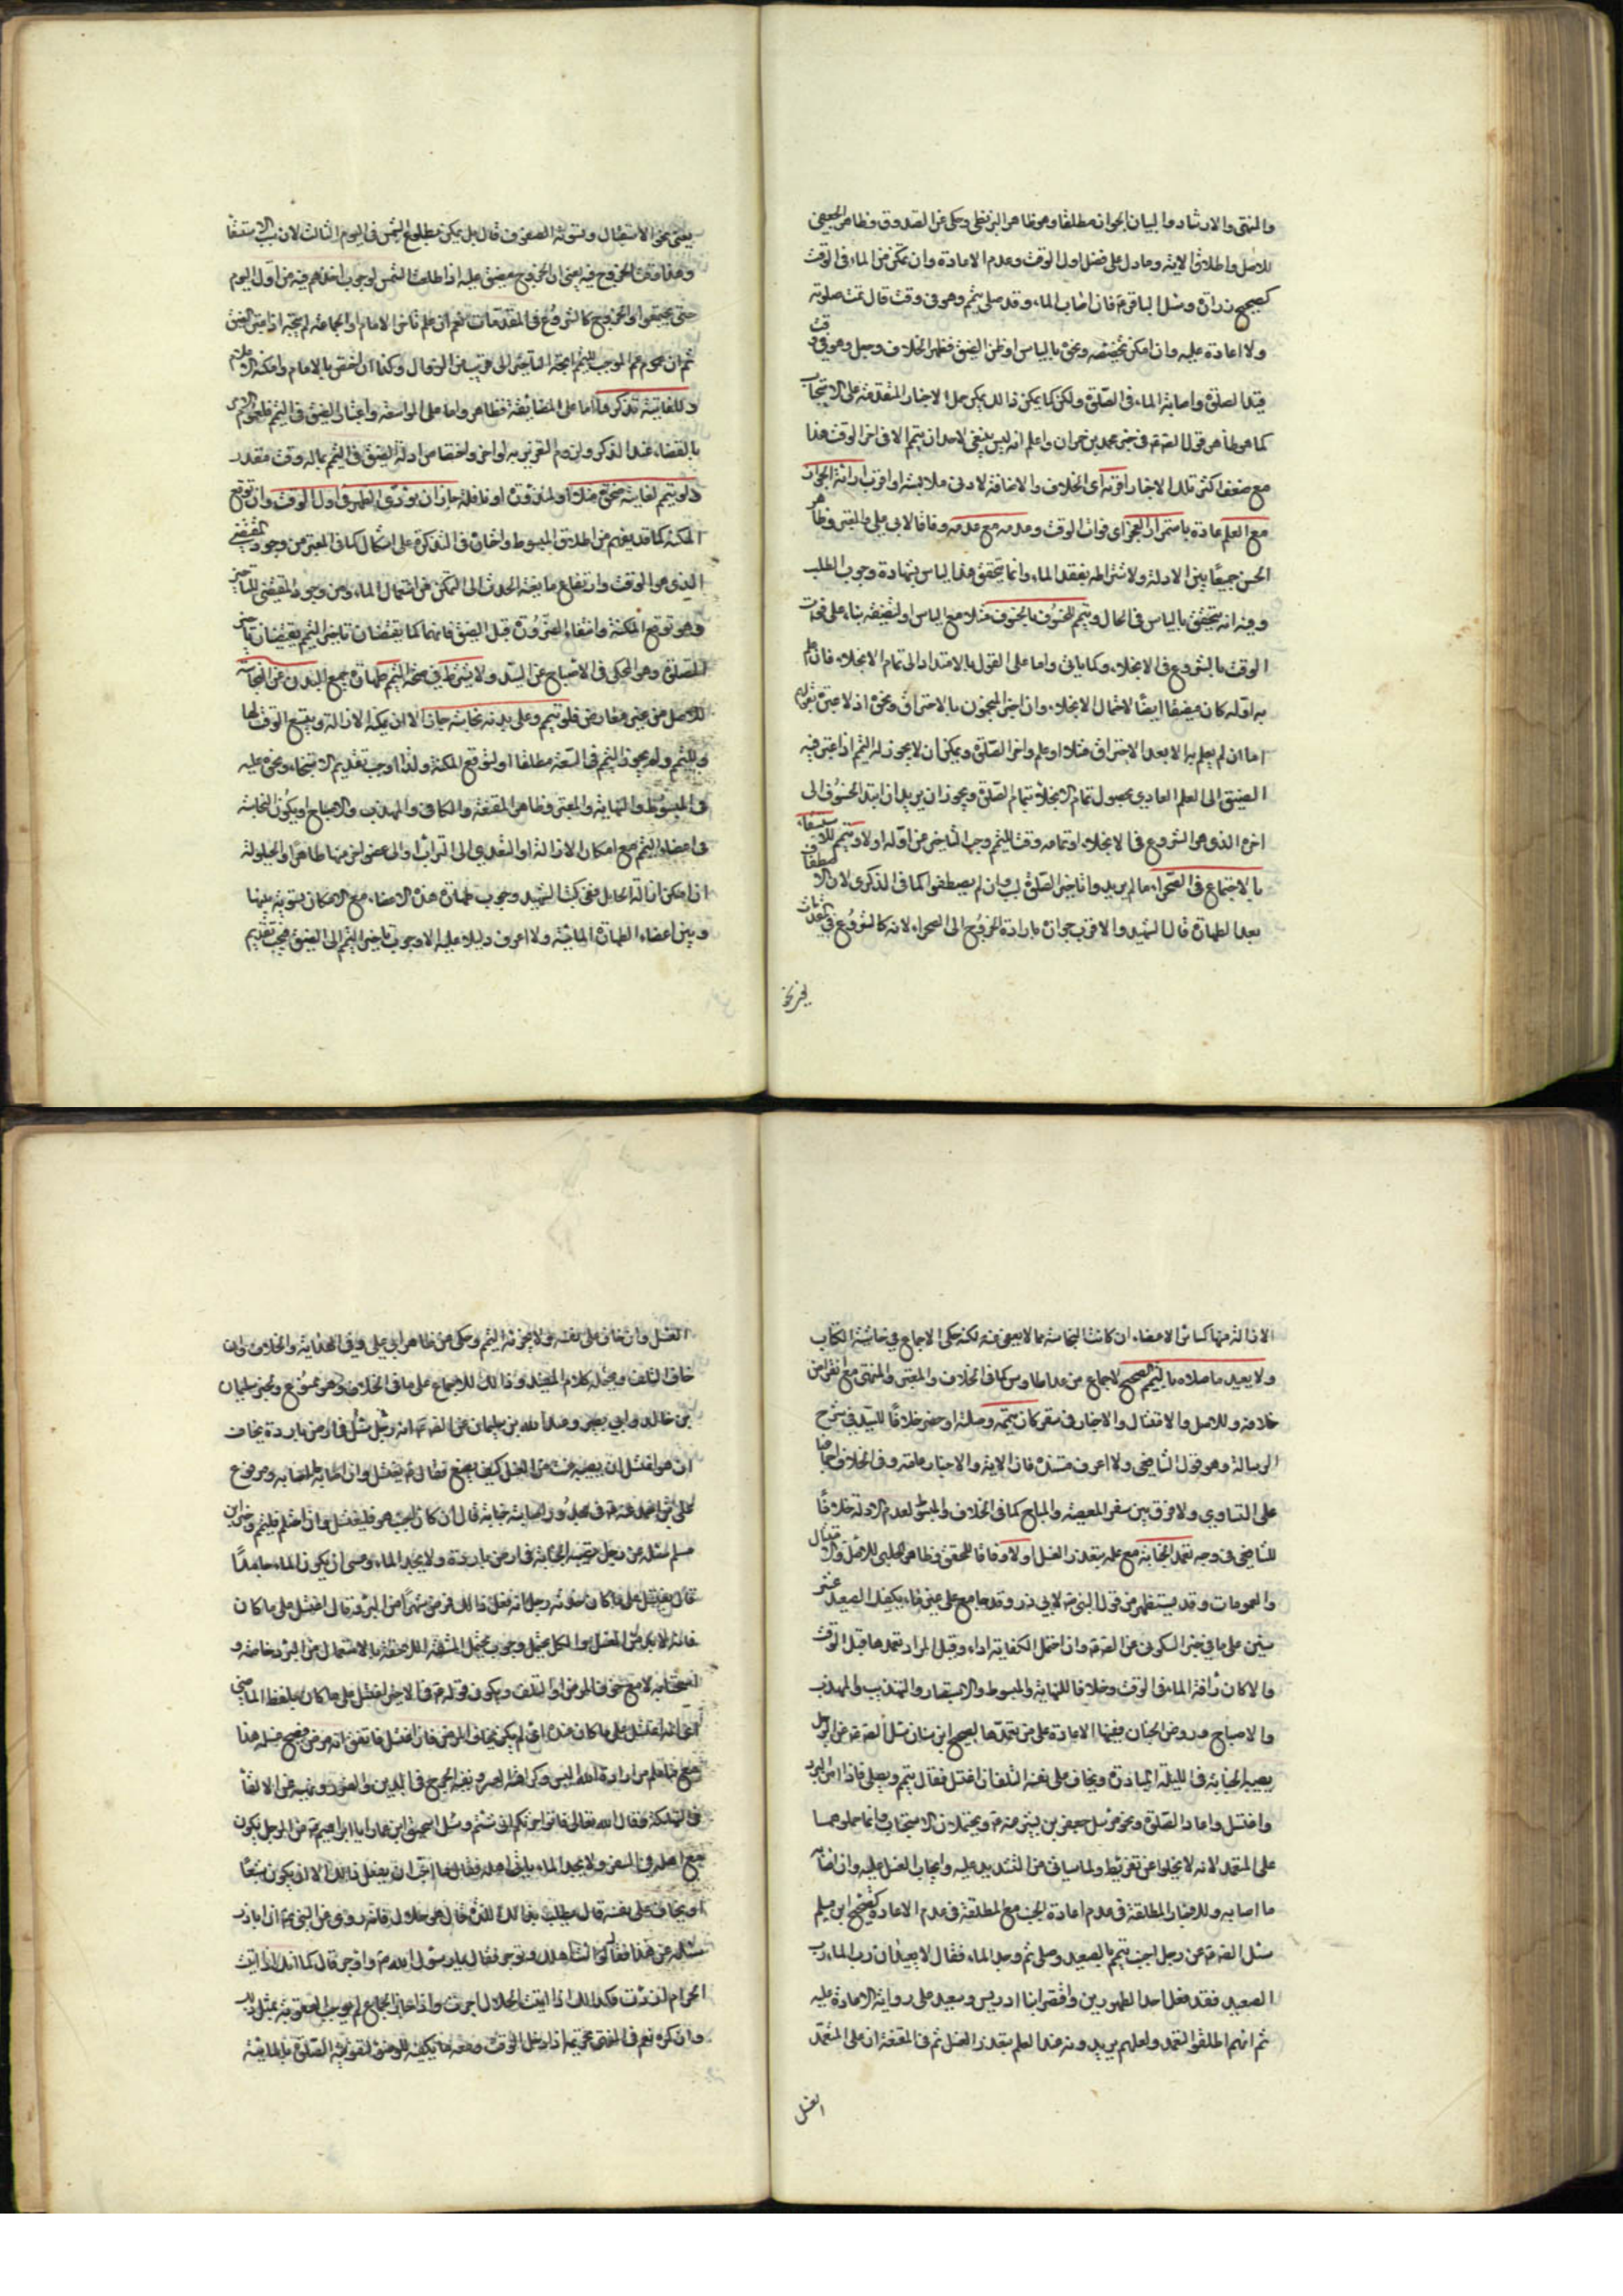 والمنتهى والارشاد والبيان الجواز مطلقا وهو ظاهر البزنطي وحكي عن الصدوق وظاهر الجعفي
للاصل واطلاق الاية وما دل على فضل اول الوقت وعدم الاعادة وان تمكن من الماء في الوقت
كصحيح زرارة وسئل الباقر ع فان اصاب الماء وقد صلى بتيمم وهو في وقت قال تمت صلوته
ولا اعادة عليه وان امكن تخصيصه ونحوه بالياس او ظن الضيق فظهر الخلاف وحمل وهو في وقت
قبل الصلوة واصابة الماء في الصلوة ولكن كما يمكن ذلك يمكن حمل الاخبار المتقدمة على الاستحباب
كما هو ظاهر قول الصادق ع في خبر محمد بن حمران واعلم انه ليس ينبغي لاحد ان يتيمم الا في اخر الوقت هذا
مع ضعف اكثر تلك الاخبار اقربه اي الخلاف والاضافة لادنى ملابسة او اقرب ارائة الجواز
مع العلم عادة باستمرار العجز اي فوات الوقت وعدمه مع عدمه وفاقا لابي علي والمعتبر وظاهر
الحسن جمعا بين الادلة ولاشتراطه بفقد الماء وانما يتحقق هذا لياس بشهادة وجوب الطلب
وفيه انه يتحقق بالياس في الحال ويتيمم للخسوف بالخسوف مثلا مع الياس او لضيقه بناء على فوات
الوقت بالشروع في الانجلاء وكما ياتي واما على القول بالامتداد الى تمام الانجلاء فان علم
به اوله كان مضيقا ايضا لاحتمال الانجلاء وان اخبر المنجمون بالاحتراق ونحوه اذ لا عبرة بقولهم
اما ان لم يعلم به الا بعد الاحتراق مثلا او علم واخر الصلوة ويمكن ان لا يجوز له التيمم اذا اعتبر فيه
الضيق الى العلم العادي بحصول تمام الانجلاء بتمام الصلوة ويجوز ان يريد ان ابتداء الخسوف الى
اخره الذي هو الشروع في الانجلاء او تمامه وقت للتيمم وجب التاخير عن اوله او لا ويتيمم للاستسقاء
بالاجتماع في الصحراء ما لم يريدوا تاخير الصلوة بل وان لم يصطفوا كما في الذكرى لان الاصطفاف
بعد الطهارة قال الشهيد والاقرب جوازه بارادة الخروج الى الصحراء لانه كالشروع في المقدمات
يعني نحو الاستقبال وتسوية الصفوف قال بل يمكن بطلوع الشمس في اليوم الثالث لان السبب الاستسقاء
وهذا وقت الخروج فيه يعني ان الخروج مضيق عليه اذا طلعت الشمس لوجوب اخلاهم فيه من اول اليوم
حتى يجتمعوا والخروج كالشروع في المقدمات نعم ان علم تاخر الامام او الجماعة لم يتجه اذا اعتبر الضيق
ثم ان عموم الموجب للتيمم اتجه التاخير الى قريب من الزوال وكذا ان اختص بالامام وامكنه الاعلام
وللفائتة بذكرها اما على المضايقة فظاهر واما على المواسعة واعتبار الضيق في التيمم فلعموم الامر
بالقضاء عند الذكر ولزوم التغرير به لو اخر واختصاص ادلة الضيق في التيمم بماله وقت مقدر
ولو تيمم لفائتة ضحوة مثلا او لمنذورة او نافلة جاز ان يؤدي الظهر في اول الوقت وان توقع
المكنة كما قد يفهم من اطلاق المبسوط واختاره في التذكرة على اشكال كما في المعتبر من وجود المقتضي
الذي هو الوقت وارتفاع مانعية الحدث الى التمكن من استعمال الماء ومن وجود المقتضي للتاخير
وهو توقع المكنة وانتفاء الضرورة قبل الضيق فانهما كما يقتضيان تاخير التيمم يقتضيان تاخير
الصلوة وهو المحكي في الاصباح عن السيد ولا يشترط في صحة التيمم طهارة جميع البدن عن النجاسة
للاصل من غير معارض فلو تيمم وعلى بدنه نجاسة جاز الا ان يمكنه الازالة ويتسع الوقت لها
وللتيمم ولم يجوز التيمم في السعة مطلقا او لتوقع المكنة ولذا اوجب تقديم الاستنجاء ونحوه عليه
في المبسوط والنهاية والمعتبر وظاهر المقنعة والكافي والمهذب والاصباح او يكون النجاسة
في اعضاء التيمم مع امكان الازالة او التعدي الى التراب او الى عضو اخر منها طاهرا والحيلولة
ان امكن ازالة الحايل ففي كتب الشهيد وجوب طهارة هذه الاعضاء مع الامكان بتسوية بينها
وبين اعضاء الطهارة المائية ولا اعرف دليلا عليه الا وجوب تاخير التيمم الى الضيق فيجب تقديم
الازالة منها كسائر الاعضاء ان كانت النجاسة مما لا يعفى عنه لكنه حكى الاجماع في حاشية الكتاب
ولا يعيد ما صلاه بالتيمم الصحيح لاجماع من عدا طاوس كما في الخلاف والمعتبر والمنتهى مع انقراض
خلافه وللاصل والامتثال والاخبار في سفر كان تيممه وصلوته او حضر خلافا للسيد في شرح
الرسالة وهو قول الشافعي ولا اعرف مستنده فان الاية والاخبار عامة وفي الخلاف اجماعنا
على التساوي ولا فرق بين سفر المعصية والمباح كما في الخلاف والمبسوط لعدم الادلة خلافا
للشافعي في وجه تعمد الجنابة مع علمه بتعذر الغسل او لا وفاقا للمحقق وظاهر الحلبي للاصل والامتثال
والعمومات وقد يستظهر من قول النبي ص لابي ذر وقد جامع على غير ماء يكفيك الصعيد عشر
سنين على ما في خبر السكوني عن الصادق ع وان احتمل الكفاية اداء وقيل المراد تعمدها قبل الوقت
والا كان كاراقة الماء في الوقت وخلافا للنهاية والمبسوط والاستبصار والتهذيب والمهذب
والاصباح وروض الجنان ففيها الاعادة على من تعمدها لصحيح ابن سنان سئل الصادق ع عن الرجل
يصيبه الجنابة في الليلة الباردة ويخاف على نفسه التلف ان اغتسل فقال يتيمم ويصلي فاذا امن البرد
واغتسل واعاد الصلوة ونحو مرسل جعفر بن بشير عنه ع ويحتملان الاستحباب وانما حملوهما
على المتعمد لانه لا يخلوا عن تفريط ولما سياتي من التشديد عليه وايجاب الغسل عليه وان اصابه
ما اصابه وللاخبار المطلقة في عدم اعادة الجنب مع المطلقة في عدم الاعادة كصحيح ابن مسلم
سئل الصادق ع عن رجل اجنب تيمم بالصعيد وصلى ثم وجد الماء فقال لا يعيد ان رب الماء رب
الصعيد فقد فعل احد الطهورين واقتصر ابنا ادريس وسعيد على رواية الاعادة عليه
ثم انهم اطلقوا التعمد ولعلهم يريدونه عند العلم بتعذر الغسل ثم في المقنعة ان على المتعمد
الغسل
الغسل وان خاف على نفسه ولا يجزئه التيمم وحكي عن ظاهر ابي علي وفي الهداية والخلاف وان
خاف التلف ويحتمله كلام المفيد وذلك للاجماع على ما في الخلاف وهو ممنوع ولخبر سليمان
بن خالد وابي بصير وعبد الله بن سليمان عن الصادق ع انه رجل سئل في ارض باردة يخاف
ان هو اغتسل ان يصيبه عنت من الغسل كيف يصنع فقال ع يغتسل وان اصابه ما اصابه ومرفوع
علي بن احمد عنه ع في مجدور اصابته جنابة قال ان كان اجنب هو فليغتسل وان احتلم فليتيمم وخبر ابن
مسلم سئله عن رجل تصيبه الجنابة في ارض باردة ولا يجد الماء وعسى ان يكون الماء جامدا
قال يغتسل على ما كان حدثه رجل انه فعل ذلك فمرض شهرا من البرد قال اغتسل على ما كان
فانه لا بد من الغسل والكل يحتمل وجوب تحمل المشقة اللاحقة بالاستعمال من البرد خاصة و
استحبابه لا مع خوف المرض او التلف ويكون قوله ع في الاخير اغتسل على ما كان بلفظ الماضي
اي انه اغتسل على ما كان عنده اي لم يكن يخاف المرض فان اغتسل فاتفق انه مرض فيصح غسله هذا
مع ما علم من ارادة الله اليسر وكراهة العسر ونفيه الحرج في الدين والضرر ونهيه عن الالقاء
في التهلكة فقال الله تعالى فاتوا حرثكم انى شئتم وسئل اسحق ابن عمار ابا ابراهيم ع عن الرجل يكون
مع اهله في السفر ولا يجد الماء ياتي اهله فقال ما احب ان يفعل ذلك الا ان يكون شبقا
او يخاف على نفسه قال يطلب بذلك اللذة قال هو حلال فانه روى عن النبي ص ان ابا ذر
سئله عن هذا فقال ائت اهلك وتوجر فقال يا رسول الله ص واوجر قال كما انك اذا اتيت
الحرام ازرت فكذلك اذا اتيت الحلال اجرت واذا جاز الجماع لم يوجب العقوبة بمثل ذلك
وان كره نعم في المنتهى تحريمه اذا دخل الوقت ومعه ما يكفيه للوضوء لتفويته الصلوة بالمائية